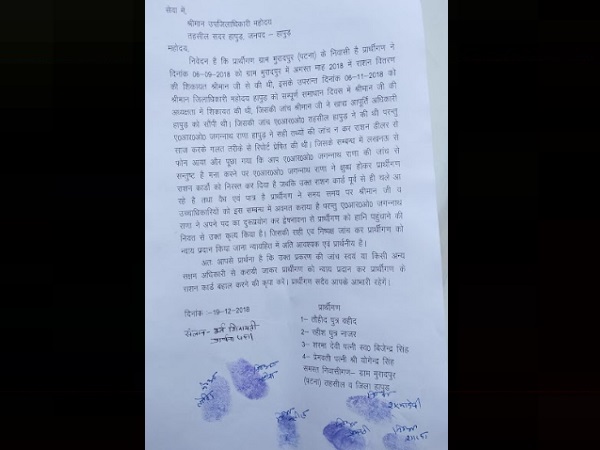 सेवा में,
श्रीमान उपजिलाधिकारी महोदय
तहसील सदर हापुड़, जनपद – हापुड़
महोदय,
निवेदन है कि प्रार्थीगण ग्राम मुरादपुर (पटना) के निवासी है प्रार्थीगण ने
दिनांक 06-09-2018 को ग्राम मुरादपुर में अगस्त माह 2018 में राशन वितरण
की शिकायत श्रीमान जी से की थी, इसके उपरान्त दिनांक 06-11-2018 को
श्रीमान जिलाधिकारी महोदय हापुड़ को सम्पूर्ण समाधान दिवस में श्रीमान जी की
अध्यक्षता में शिकायत की थी, जिसकी जांच श्रीमान जी ने खाद्य आपूर्ति अधिकारी
हापुड़ को सौंपी थी। जिसकी जांच ए०आर०ओ० तहसील हापुड़ ने की थी परन्तु
ए०आर०ओ० जगन्नाथ राणा हापुड़ ने सही तथ्यों की जांच न कर राशन डीलर से
साज करके गलत तरीके से रिपोर्ट प्रेषित की थी। जिसके सम्बन्ध में लखनऊ से
फोन आया और पूछा गया कि आप ए०आर०ओ० जगन्नाथ राणा की जांच से
सन्तुष्ट है मना करने पर ए०आर०ओ० जगन्नाथ राणा ने क्षुब्ध होकर प्रार्थीगण
राशन कार्डों को निरस्त कर दिया है जबकि उक्त राशन कार्ड पूर्व से ही चले आ
रहे है तथा वैध एवं पात्र है प्रार्थीगण ने समय समय पर श्रीमान जी व
उच्चाधिकारियों को इस सम्बन्ध में अवगत कराया है परन्तु ए०आर०ओ० जगन्नाथ
राणा ने अपने पद का दुरूपयोग कर द्वेषभावना से प्रार्थीगण को हानि पहुंचाने की
नियत से उक्त कृत्य किया है। जिसकी सही एवं निष्पक्ष जांच कर प्रार्थीगण को
न्याय प्रदान किया जाना न्यायहित में अति आवश्यक एवं प्रार्थनीय है।
अतः आपसे प्रार्थना है कि उक्त प्रकरण की जांच स्वयं या किसी अन्य
सक्षम अधिकारी से करायी जाकर प्रार्थीगण को न्याय प्रदान कर प्रार्थीगण के
राशन कार्ड बहाल करने की कृपा करे। प्रार्थीगण सदैव आपके आभारी रहेगें।
दिनांक :-19-12-2018
प्रार्थीगण
1– तौहीद पुत्र वहीद
2– रहीश पुत्र नाजर
3– शरमा देवी पत्नी स्व० बिजेन्द्र सिंह
4– प्रेमवती पत्नी श्री योगेन्द्र सिंह
समस्त निवासीगण– ग्राम मुरादपुर
(पटना) तहसील व जिला हापुड़